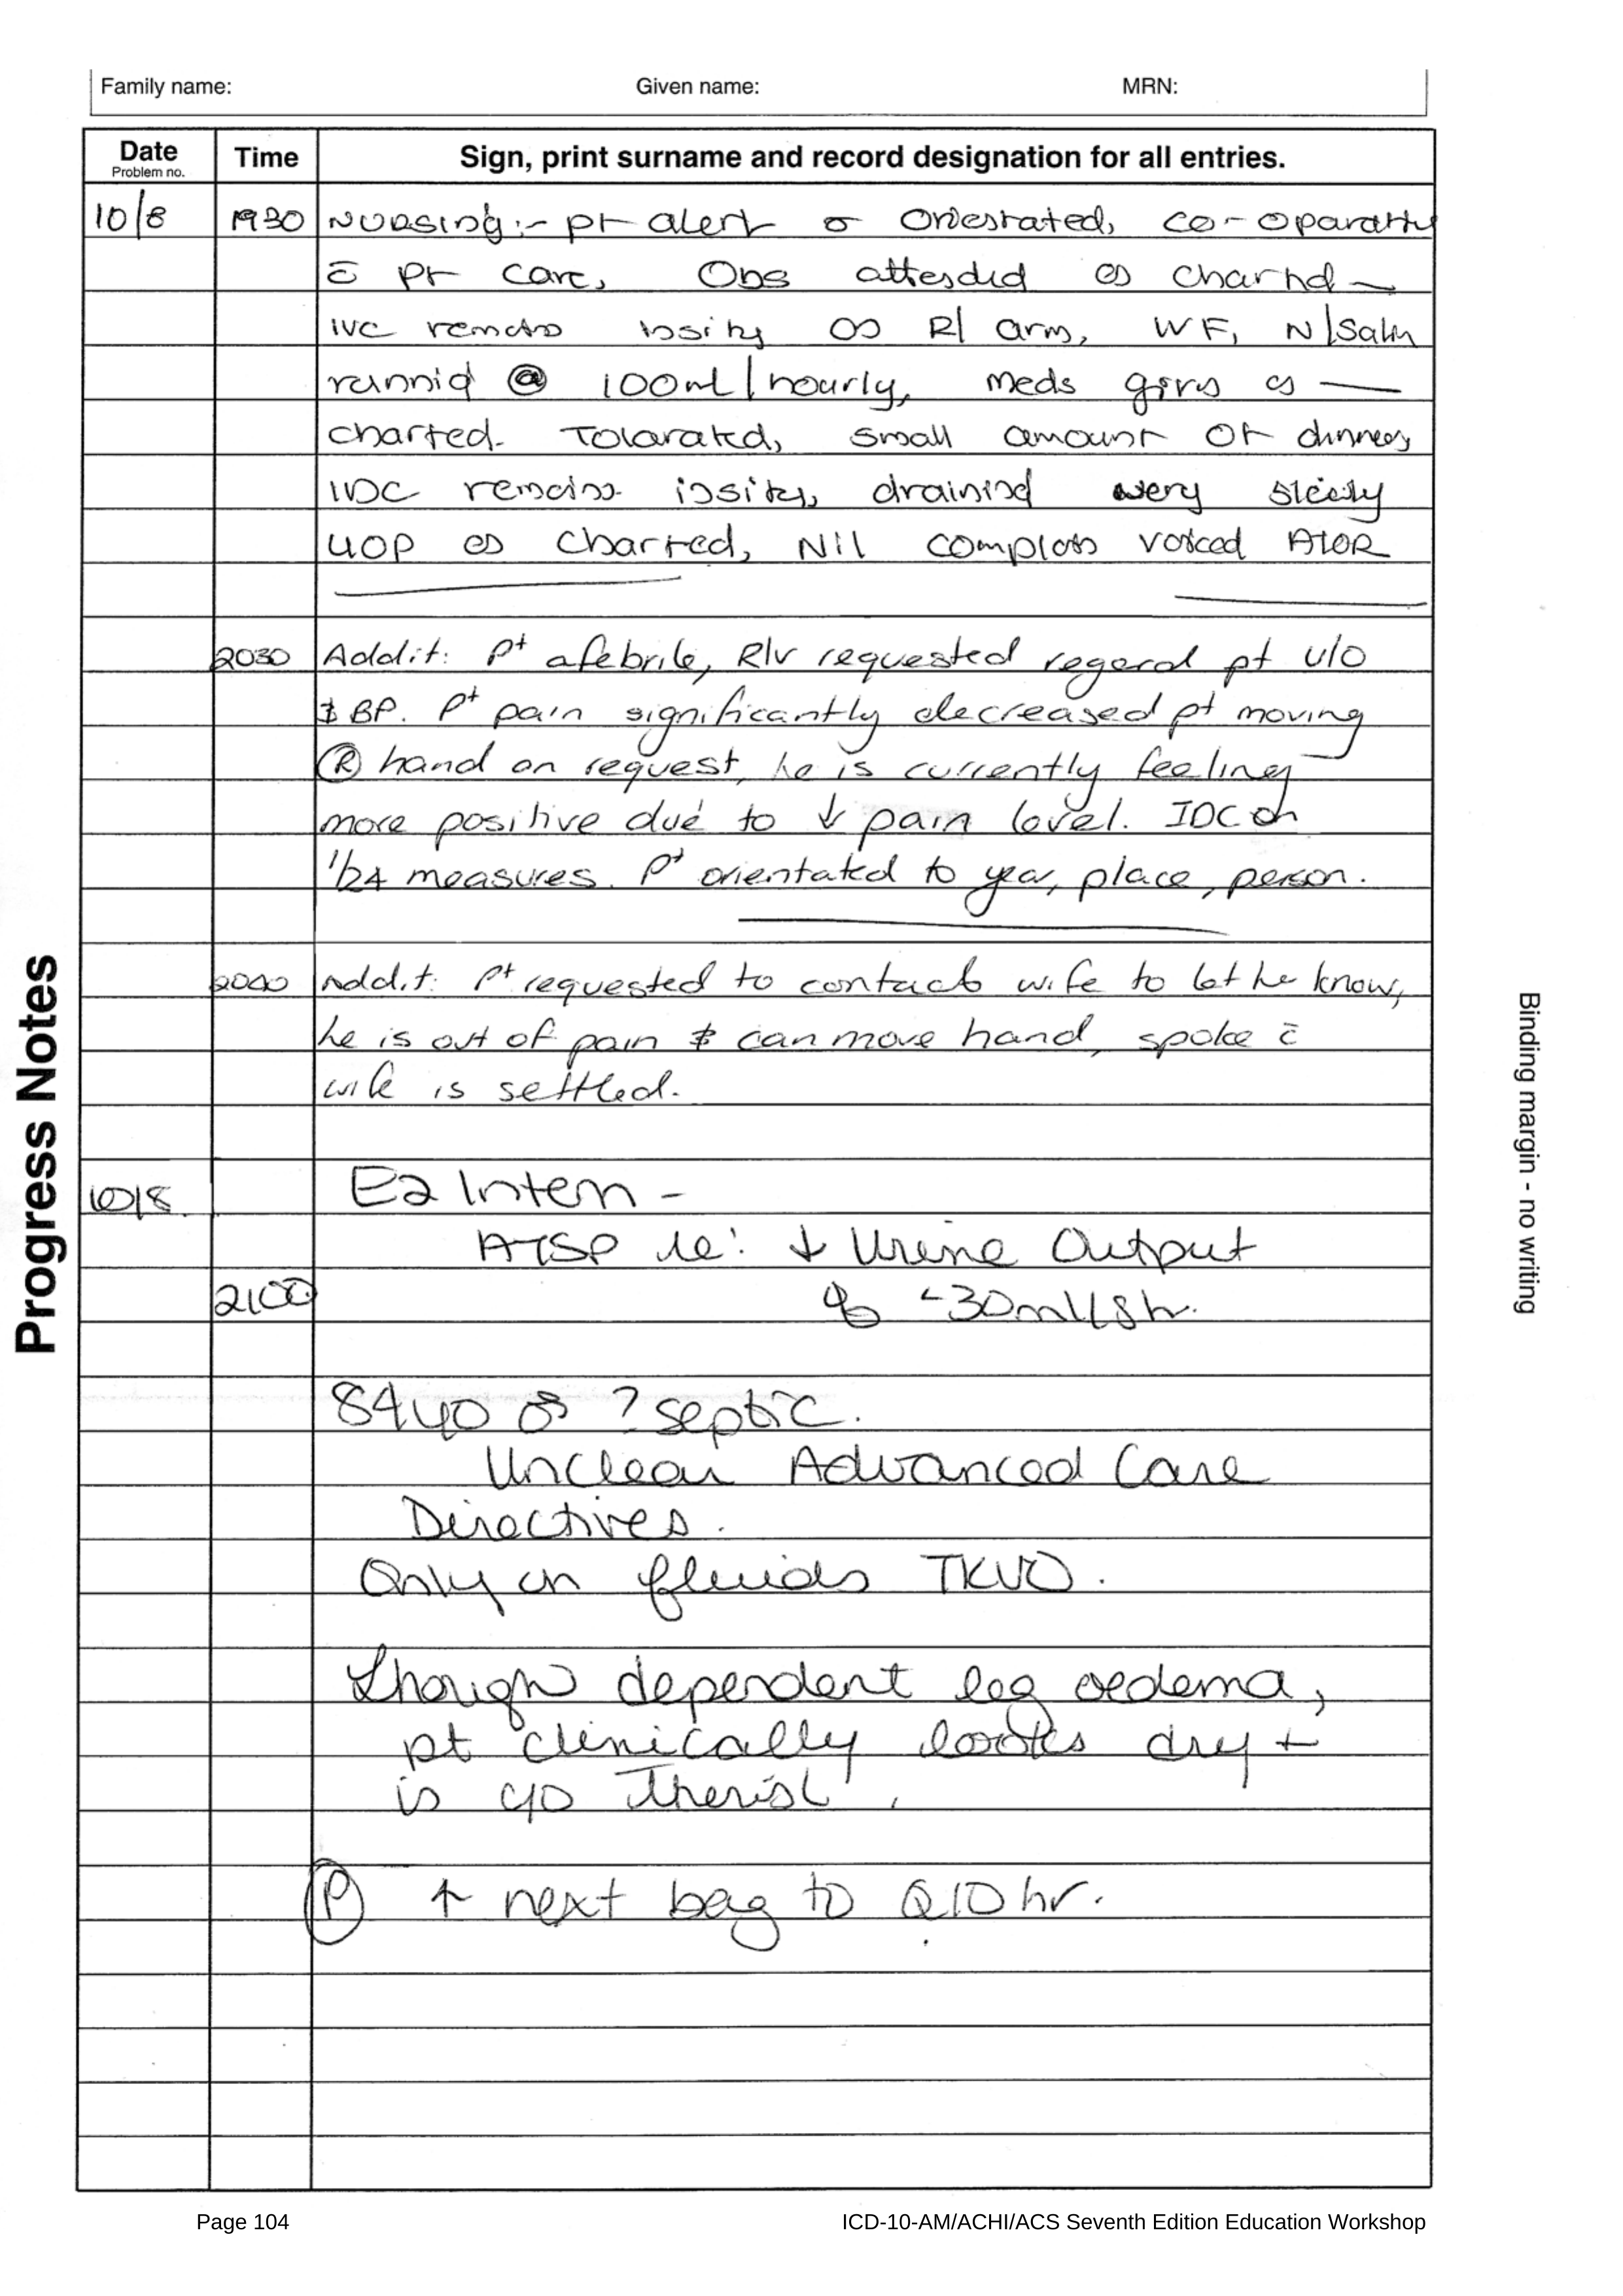 Family name: Given name: MRN:
Date Time Sign, print surname and record designation for all entries.
Problem no.
10/8 1930 Nursing:- pt alert & orientated, co-operative
c̄ pt care, Obs attended as charted
IVC remains insitu on R/ arm, WF, N/Saline
running @ 100ml/hourly, meds given as
charted. Tolarated, small amount of dinner,
IDC remains insitu, draining very
UOP as charted, Nil complaints voiced ATOR
2030 Addit: Pt afebrile, R/v requested regard pt u/o
& BP. Pt pain significantly decreased pt moving
Ⓡ hand on request, he is currently feeling
more positive due to ↓ pain level. IDC on
1/24 measures. Pt orientated to year, place, person.
2040 Addit: Pt requested to contact wife to let he know,
he is out of pain & can move hand, spoke c̄
wife is settled.
10/8. E2 Intern -
ATSP re: ↓ Urine Output
2100 <30ml/8hr.
84yo ♂ ? septic.
Unclear Advanced Care
Directives.
Only on fluids TKVO.
Though dependent leg oedema,
pt clinically looks dry +
is c/o thirst.
Ⓟ ↑ next bag to Q10hr.
Progress Notes
Binding margin - no writing
Page 104 ICD-10-AM/ACHI/ACS Seventh Edition Education Workshop